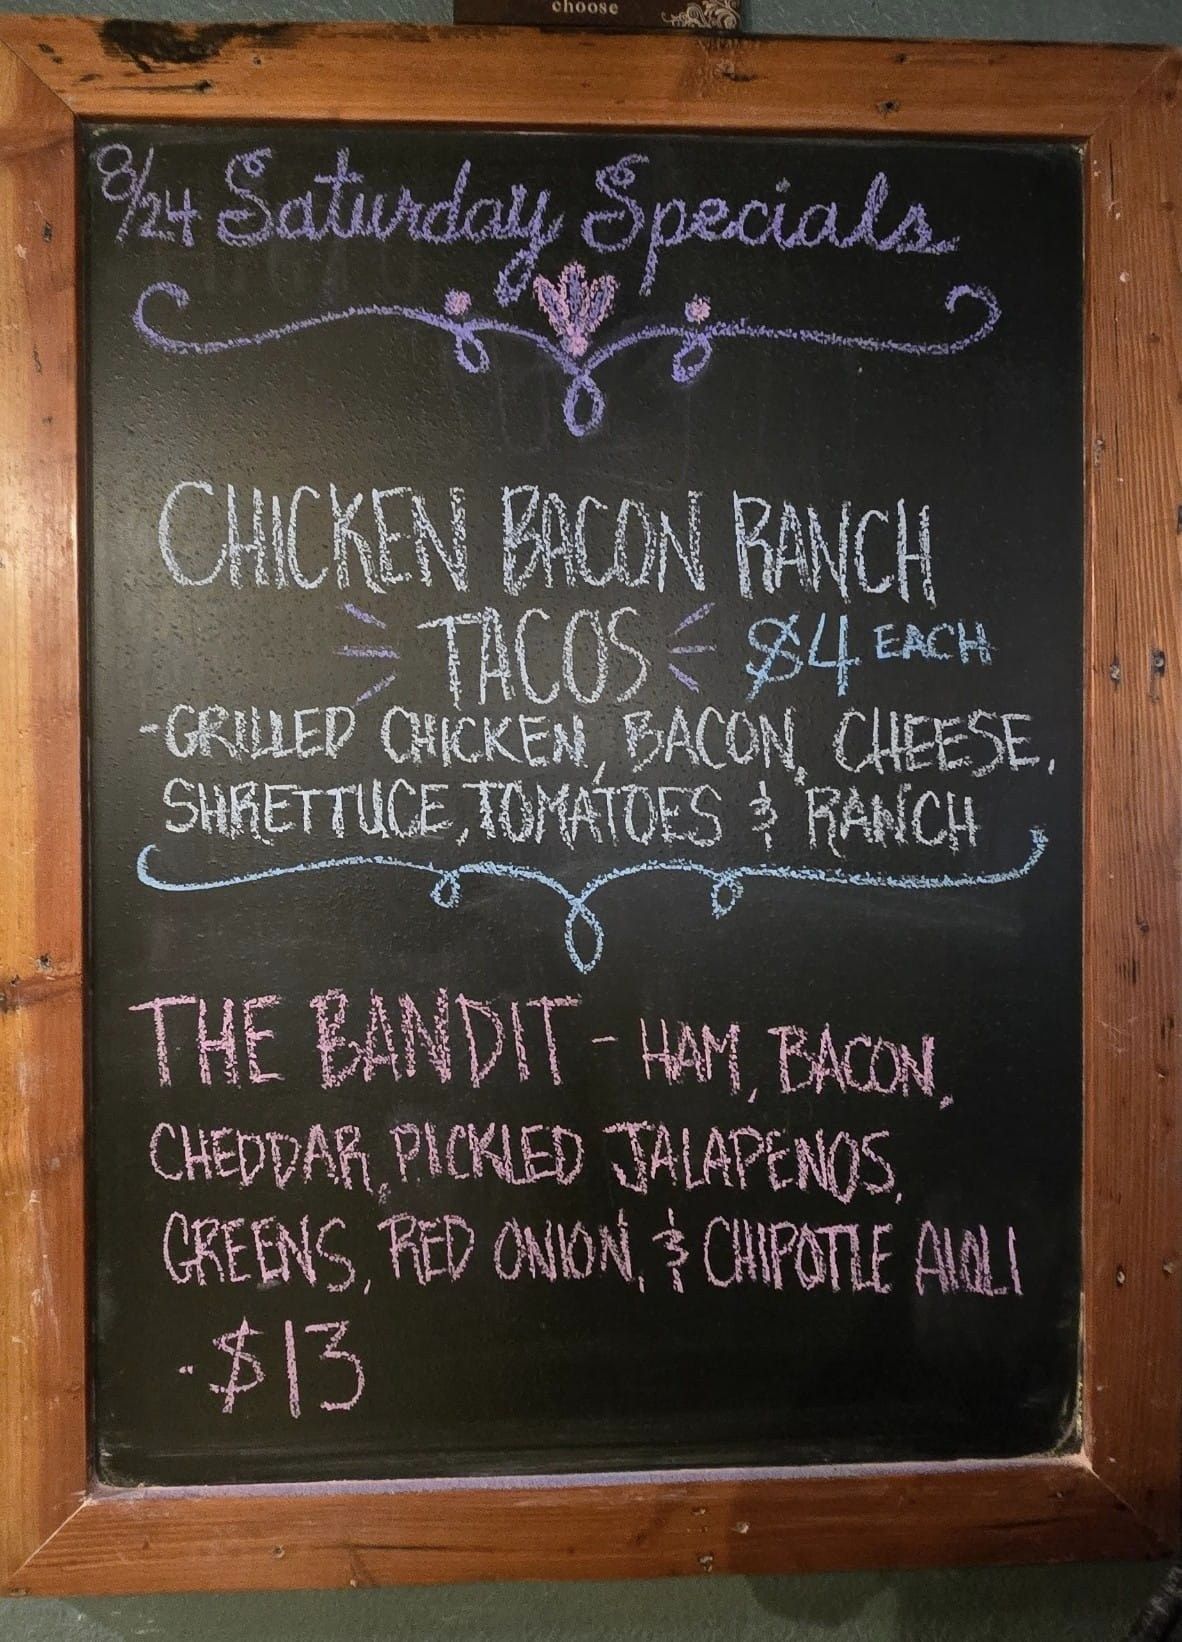 choose
8/24 Saturday Specials
CHICKEN BACON RANCH
TACOS $4 EACH
-GRILLED CHICKEN, BACON, CHEESE,
SHRETTUCE, TOMATOES & RANCH
THE BANDIT - HAM, BACON,
CHEDDAR, PICKLED JALAPENOS,
GREENS, RED ONION, & CHIPOTLE AIOLI
-$13